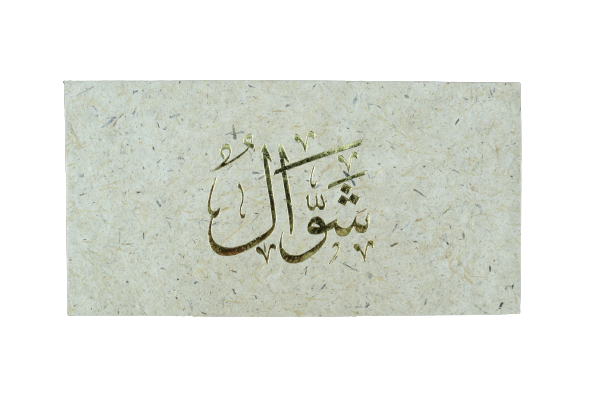 شَوَّالُ